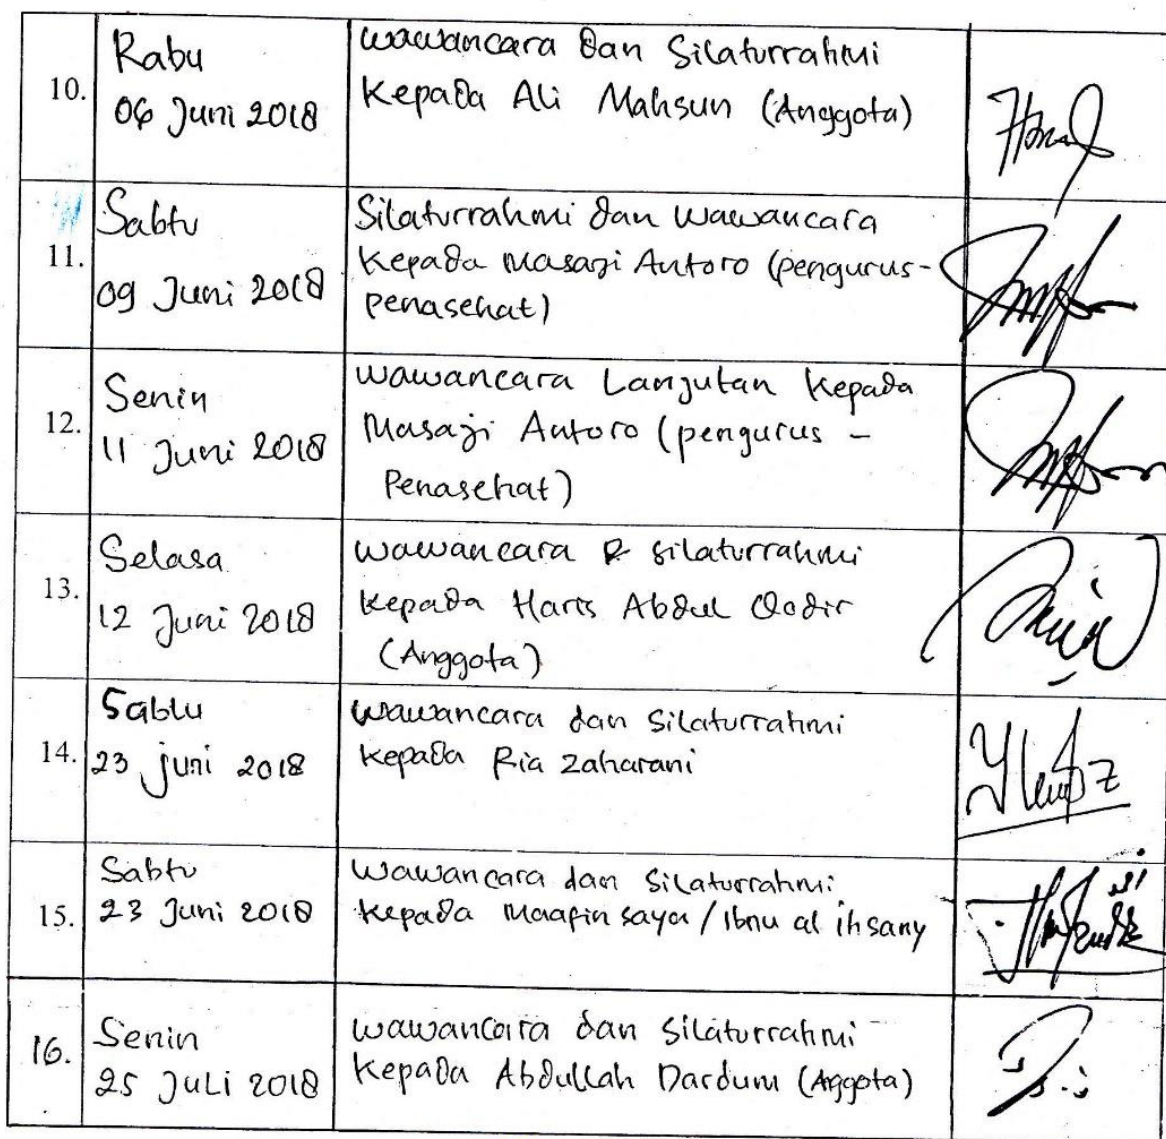 10.
Rabu
06 Juni 2018
Wawancara dan Silaturrahmi
Kepada Ali Mahsun (Anggota)
11.
Sabtu
09 Juni 2018
Silaturrahmi dan wawancara
Kepada Masaji Antoro (pengurus-
penasehat)
12.
Senin
11 Juni 2018
Wawancara Lanjutan Kepada
Masaji Antoro (pengurus -
Penasehat)
13.
Selasa
12 Juni 2018
Wawancara & silaturrahmi
Kepada Haris Abdul Qodir
(Anggota)
14.
Sabtu
23 juni 2018
Wawancara dan Silaturrahmi
Kepada Ria Zaharani
15.
Sabtu
23 Juni 2018
Wawancara dan Silaturrahmi
Kepada Maafin saya / Ibnu al ihsany
16.
Senin
25 JuLi 2018
Wawancara dan Silaturrahmi
Kepada Abdullah Dardum (Aggota)